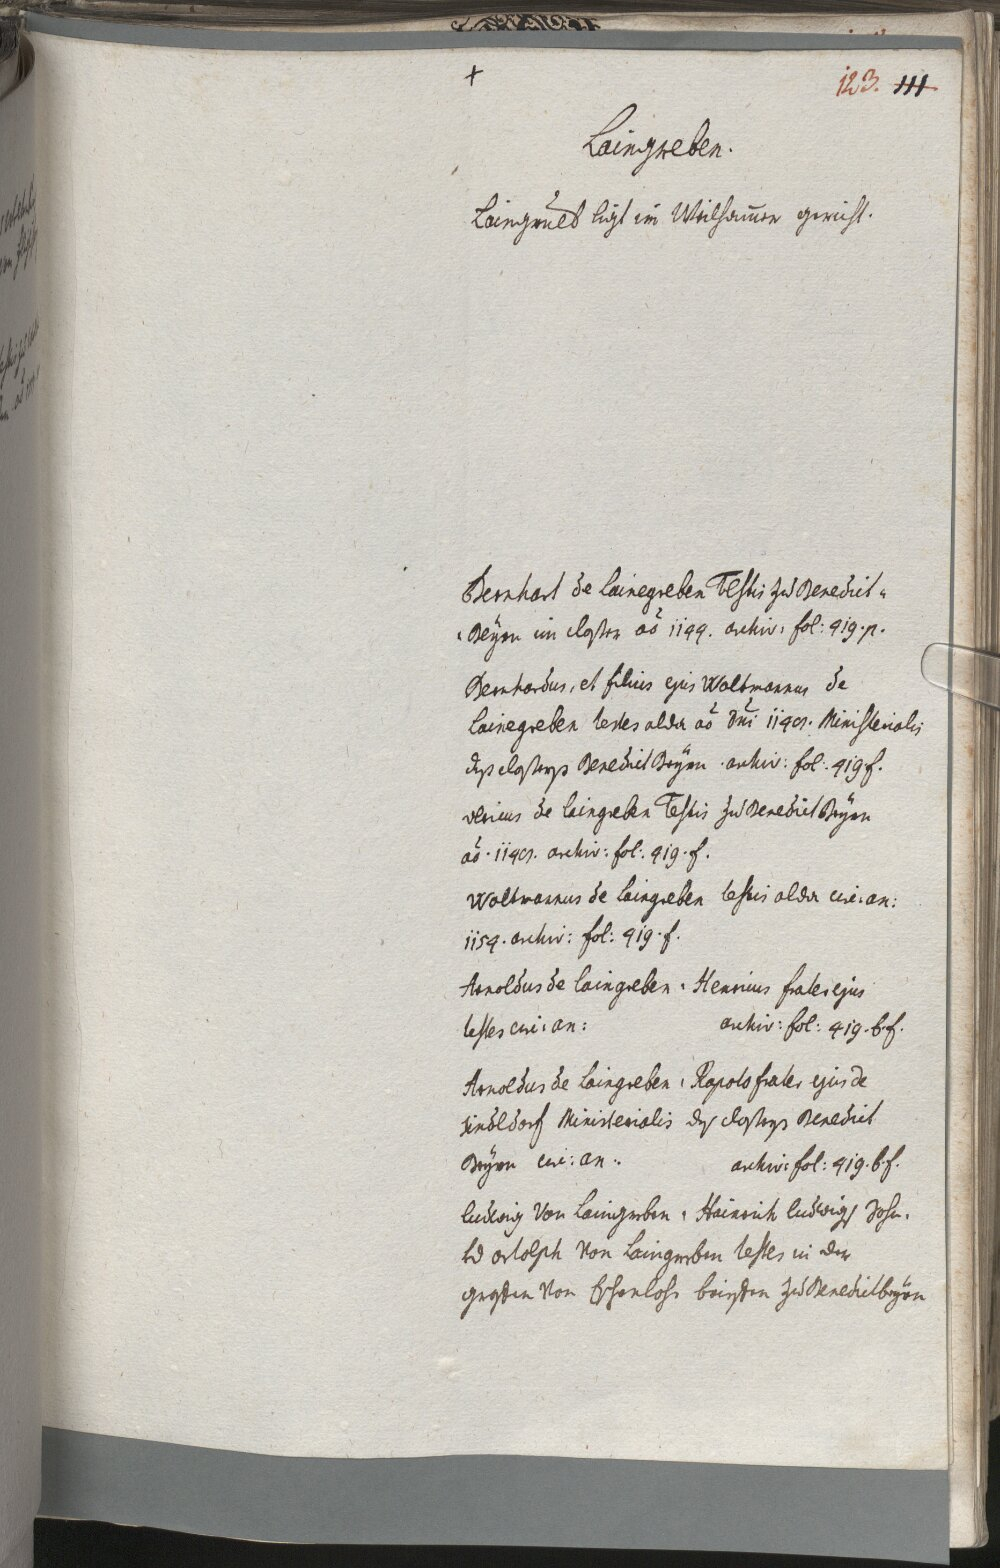 +
123. 111
Laingreben.
Laingrueb ligt im Weilhaimer gericht.
Bernhart de Lainegreben Testis zu Benedict
Beÿrn im closter aõ 1144. archiv: fol: 419. p.
Bernhardus, et filius ejus Waltmannus de
Lainegreben testes alda aõ dni 1147. Ministerialis
dess closterss BenedictBeÿrn. archiv: fol. 419 f.
de Laingreben Testis zu BenedictBeÿrn
aõ. 1147. archiv: fol: 419. f.
Waltmannus de Laingreben testis alda circ: an:
1154. archiv: fol: 419. f.
Arnoldus de Laingreben, Henricus frater ejus
testes circ: an: archiv: fol: 419. b. f.
Arnoldus de Laingreben, Rapoto frater ejus de
sindldorf Ministerialis dess closterss Benedict
Beÿrn circ: an: archiv: fol: 419. b. f.
Ludwig von Laingreben, Hainrich Ludwigs Sohn,
ortolph von Laingreben testes in der
von Eschenlohe zu Benedictbeÿrn